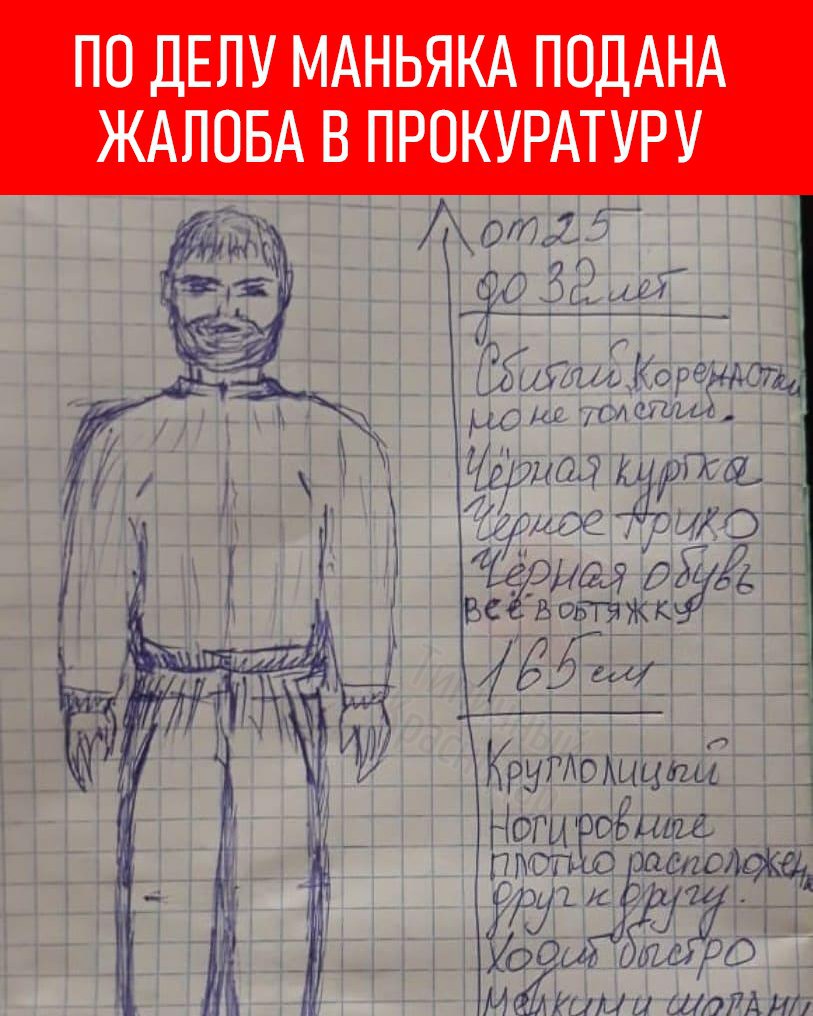 ПО ДЕЛУ МАНЬЯКА ПОДАНА
ЖАЛОБА В ПРОКУРАТУРУ
от 25
до 32 лет
Сбитый Коренастый
но не толстый.
Чёрная куртка
Чёрное трико
Чёрная обувь
всё в обтяжку
165 см
Круглолицый
Ноги ровные
плотно расположены
друг к другу.
Ходит быстро
мелкими шагами
Типичный